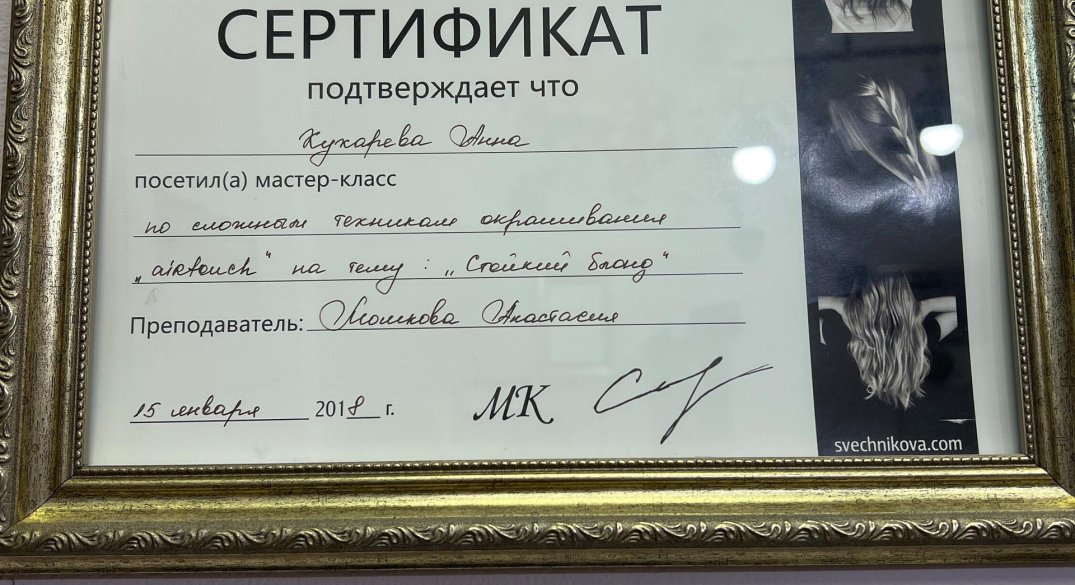 СЕРТИФИКАТ
подтверждает что
Кухарева Анна
посетил(а) мастер-класс
по сложным техникам окрашивания
„airtouch" на тему: „Стойкий блонд"
Преподаватель: Момкова Анастасия
15 января 2018 г.
МК
svechnikova.com